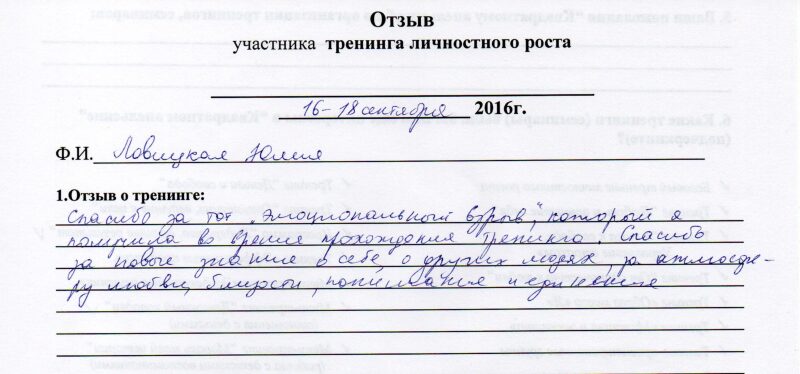 Отзыв
участника тренинга личностного роста
16-18 сентября 2016г.
Ф.И. Ловицкая Юлия
1.Отзыв о тренинге:
Спасибо за тот „эмоциональный взрыв“, который я
получила во время прохождения тренинга. Спасибо
за новые знания о себе, о других людях, за атмосфе-
ру любви, близости, понимания и единения